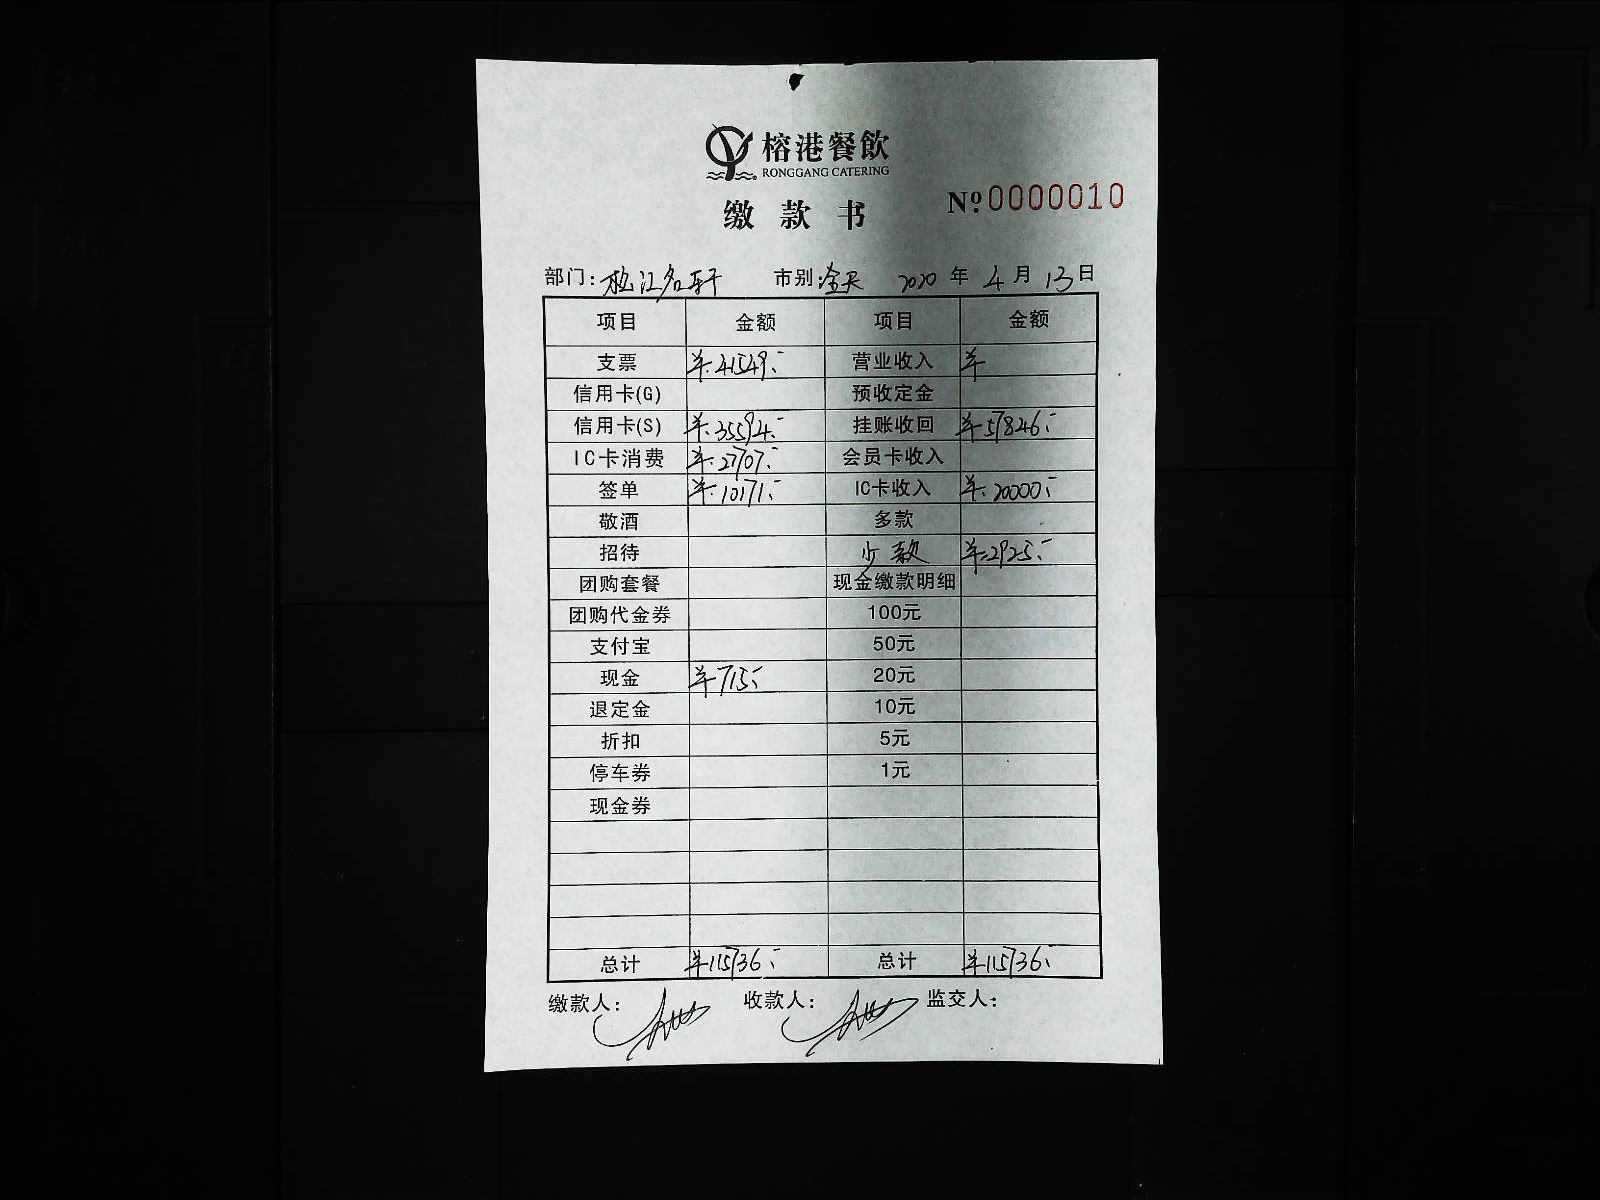 榕港餐飲
RONGGANG CATERING
缴款书 №0000010
部门:松江名轩 市别:全天 2020年4月13日
项目 金额 项目 金额
支票 ¥:41549.- 营业收入 ¥
信用卡(G) 预收定金
信用卡(S) ¥:35594.- 挂账收回 ¥57846.-
IC卡消费 ¥:27707.- 会员卡收入
签单 ¥:10171.- IC卡收入 ¥:20000.-
敬酒 多款
招待 少款 ¥:2925.-
团购套餐 现金缴款明细
团购代金券 100元
支付宝 50元
现金 ¥715.- 20元
退定金 10元
折扣 5元
停车券 1元
现金券
总计 ¥115736.- 总计 ¥115736.-
缴款人: 收款人: 监交人: